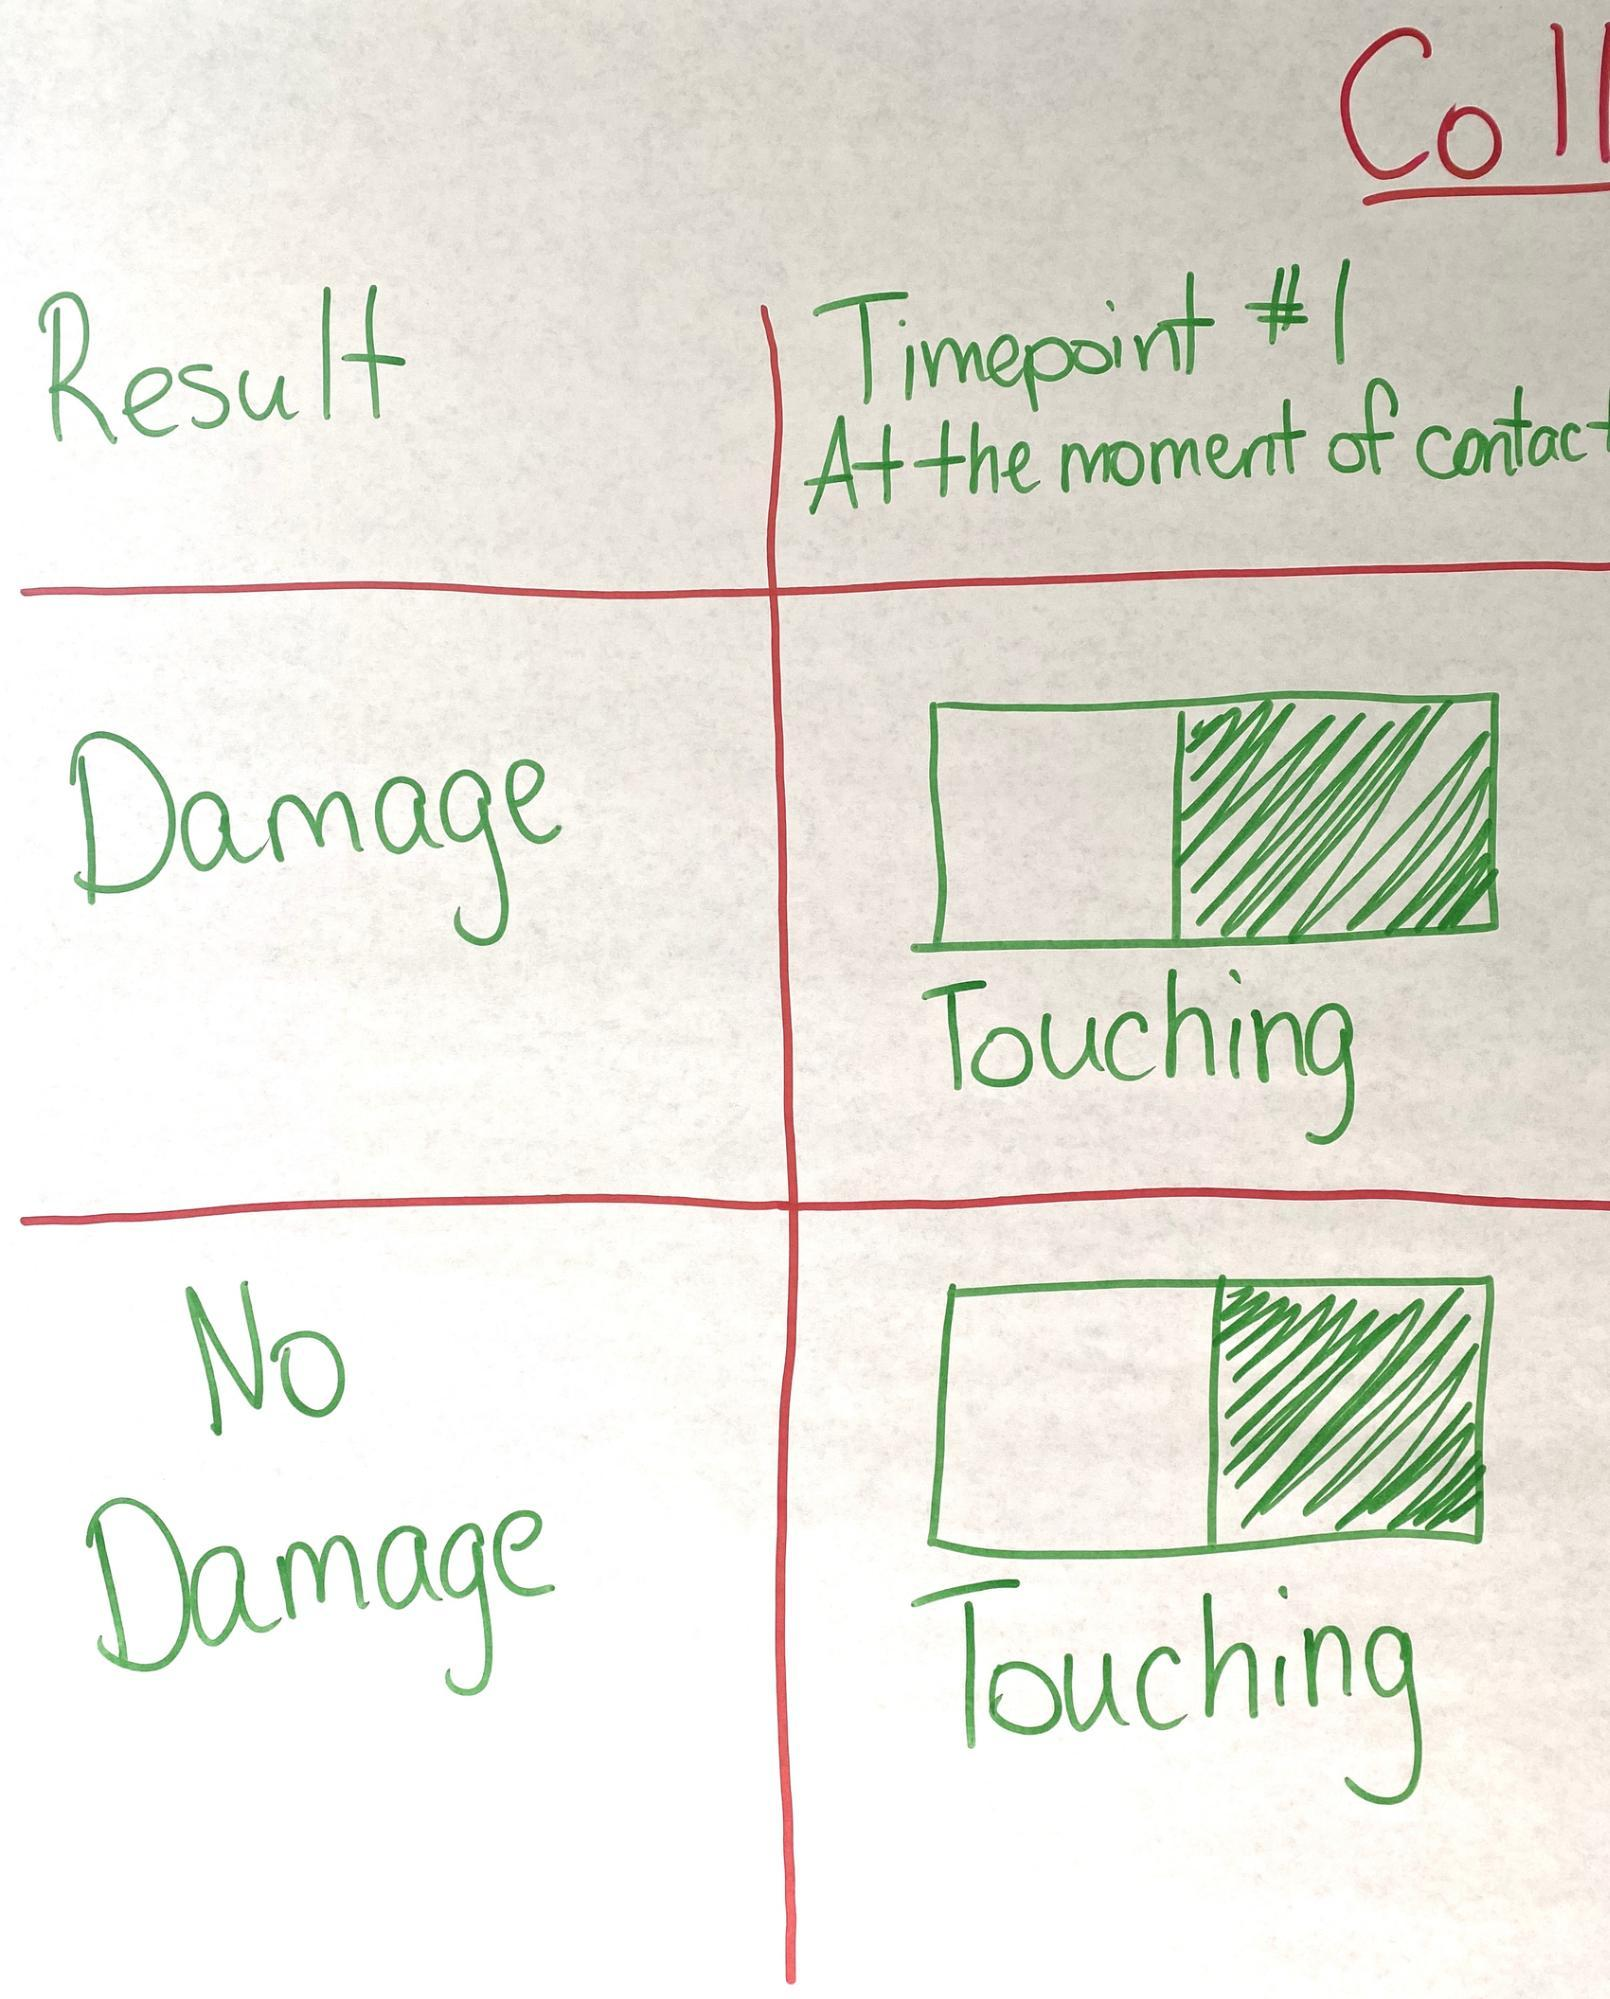 Coll
Result
Timepoint #1
At the moment of contact
Damage
Touching
No
Damage
Touching